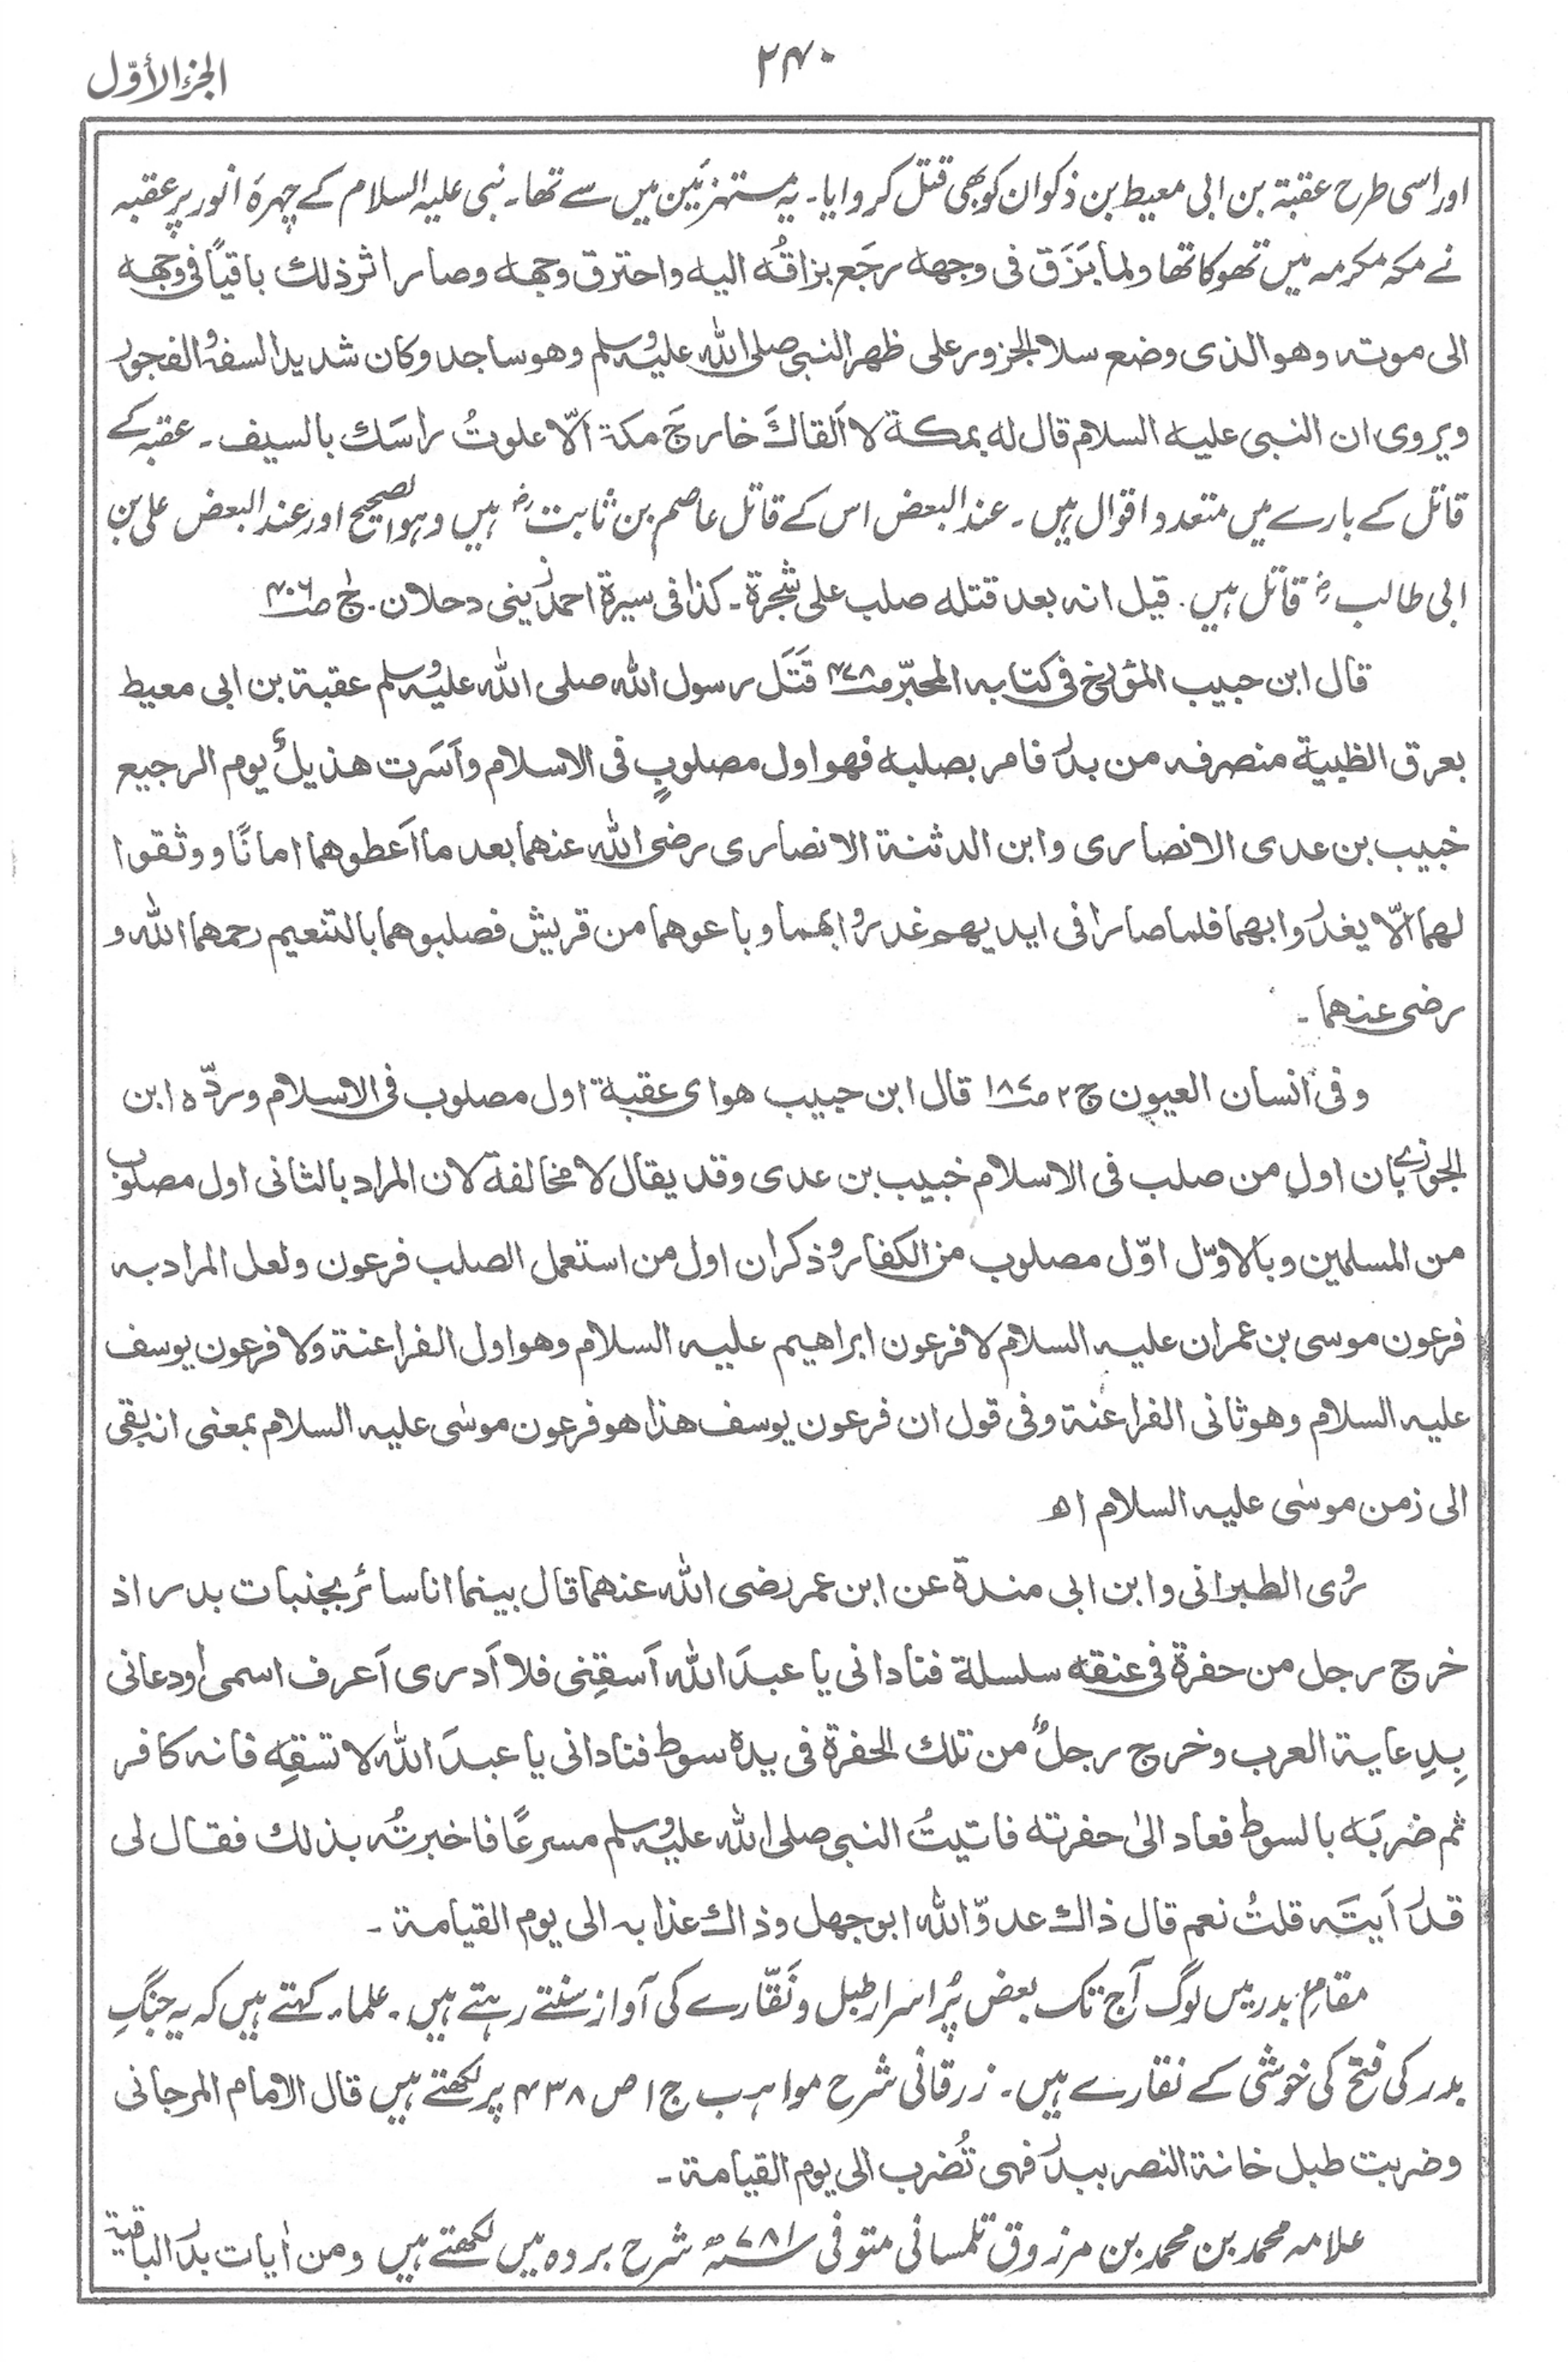 الجزء الأوّل
۲۴۰
اور اسی طرح عقبۃ بن ابی معیط بن ذکوان کو بھی قتل کروایا۔ یہ مستہزئین میں سے تھا۔ نبی علیہ السلام کے چہرۂ انور پر عقبہ
نے مکہ مکرمہ میں تھوکا تھا ولما بَزَق فی وجھہ رجَع بزاقُہ الیہ واحترق وجھہ وصار اثر ذلك باقیاً فی وجھہ
الی موتہ وھو الذی وضع سلا الجزور علی ظھر النبی صلی اللہ علیہ وسلم وھو ساجد وکان شدید السفہ والفجور
ویروی ان النبی علیہ السلام قال لہ بمکۃ لا اَلقاكَ خارجَ مکۃ الّا علوتُ راسَك بالسیف ۔ عقبہ کے
قاتل کے بارے میں متعدد اقوال ہیں ۔ عند البعض اس کے قاتل عاصم بن ثابتؓ ہیں وہو الصحیح اور عند البعض علی بن
ابی طالبؓ قاتل ہیں ۔ قیل انہ بعد قتلہ صلب علی شجرۃ ۔ کذا فی سیرۃ احمد زینی دحلان ۔ ج۱ ص۴۰۶
قال ابن حبیب المؤرخ فی کتابہ المحبّر ص۴۷۸ قَتَل رسول اللہ صلی اللہ علیہ وسلم عقبۃ بن ابی معیط
بعرق الظبیۃ منصرفہ من بدر فامر بصلبہ فھو اول مصلوبٍ فی الاسلام وآسَرت ھذیلٌ یوم الرجیع
خبیب بن عدی الانصاری وابن الدثنۃ الانصاری رضی اللہ عنھما بعد ما اَعطوھما امانًا ووثقوا
لھما الّا یغدروا بھما فلما صارا فی ایدیھم غدرُوا بھما وباعوھما من قریش فصلبوھما بالتنعیم رحمھما اللہ و
رضی عنھما ۔
وفی انسان العیون ج۲ ص۱۸۷ قال ابن حبیب ھو ای عقبۃ اول مصلوب فی الاسلام وردّہ ابن
الجوزی بان اول من صلب فی الاسلام خبیب بن عدی وقد یقال لا مخالفۃ لان المراد بالثانی اول مصلوب
من المسلمین وبالاوّل اوّل مصلوب من الکفار وذکر ان اول من استعمل الصلب فرعون ولعل المراد بہ
فرعون موسی بن عمران علیہ السلام لا فرعون ابراھیم علیہ السلام وھو اول الفراعنۃ ولا فرعون یوسف
علیہ السلام وھو ثانی الفراعنۃ وفی قول ان فرعون یوسف ھذا ھو فرعون موسٰی علیہ السلام بمعنی انہ بقی
الی زمن موسٰی علیہ السلام اھ
رُوی الطبرانی وابن ابی مندۃ عن ابن عمر رضی اللہ عنھما قال بینما انا سائر بجنبات بدر اذ
خرج رجل من حفرۃ فی عنقہ سلسلۃ فنادانی یا عبدَ اللہ اَسقِنی فلا اَدری اَعرف اسمی او دعانی
بِدِعایۃ العرب وخرج رجلٌ من تلك الحفرۃ فی یدہ سوط فنادانی یا عبدَ اللہ لا تسقِہ فانہ کافر
ثم ضربَہ بالسوط فعاد الیٰ حفرتہ فاتیتُ النبی صلی اللہ علیہ وسلم مسرعًا فاخبرتُہ بذلك فقال لی
قد رَأیتَہ قلتُ نعم قال ذاك عدوّ اللہ ابو جھل وذاك عذابہ الی یوم القیامۃ ۔
مقامِ بدر میں لوگ آج تک بعض پُر اسرار طبل و نَقّارے کی آواز سنتے رہتے ہیں ۔ علماء کہتے ہیں کہ یہ جنگِ
بدر کی فتح کی خوشی کے نقارے ہیں ۔ زرقانی شرح مواہب ج ۱ ص ۴۳۸ پر لکھتے ہیں قال الامام المرجانی
وضربت طبل خانۃ النصر ببدر فھی تُضرب الی یوم القیامۃ ۔
علامہ محمد بن محمد بن مرزوق تلمسانی متوفی ۷۸۱ھ شرح بردہ میں لکھتے ہیں ومن اٰیات بدر الباقیۃ